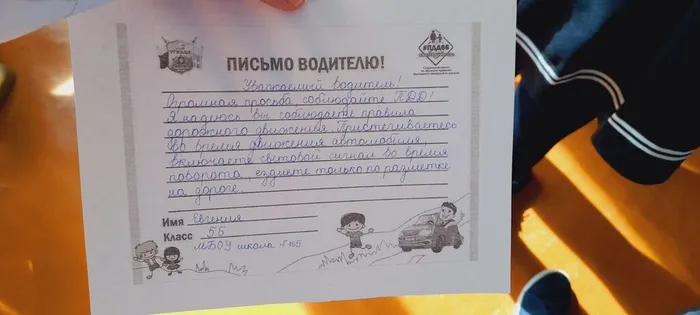 ПИСЬМО ВОДИТЕЛЮ!
#ПДД66
Уважаемый водитель!
Огромная просьба, соблюдайте ПДД!
Я надеюсь вы соблюдаете правила
дорожного движения. Пристегиваетесь
во время движения автомобиля,
включаете световой сигнал во время
поворота, ездиете только по разметке
на дороге.
Имя Евгения
Класс 5Б
МБОУ школа